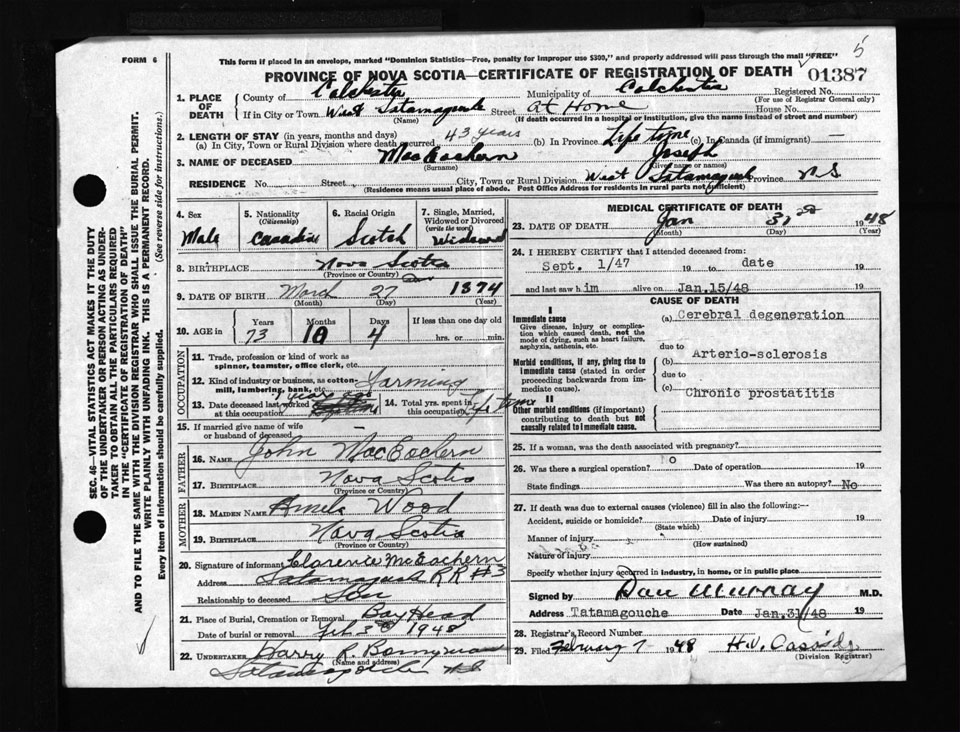 5
FORM 6
This form if placed in an envelope, marked "Dominion Statistics—Free, penalty for improper use $300," and properly addressed will pass through the mail "FREE"
PROVINCE OF NOVA SCOTIA—CERTIFICATE OF REGISTRATION OF DEATH
01387
1. PLACE OF DEATH
County of Colchester Municipality of Colchester Registered No.
(For use of Registrar General only)
If in City or Town West Tatamagouche Street At Home House No.
(Name) (If death occurred in a hospital or institution, give the name instead of street and number)
2. LENGTH OF STAY (in years, months and days)
(a) In City, Town or Rural Division where death occurred 43 years (b) In Province Life time (c) In Canada (if immigrant) —
3. NAME OF DECEASED MacEachern Joseph
(Surname) (Given name or names)
RESIDENCE No. Street City, Town or Rural Division West Tatamagouche Province N S
(Residence means usual place of abode. Post Office Address for residents in rural parts not sufficient)
4. Sex
Male
5. Nationality
(Citizenship)
Canadian
6. Racial Origin
Scotch
7. Single, Married, Widowed or Divorced
(write the word)
Widowed
8. BIRTHPLACE Nova Scotia
(Province or Country)
9. DATE OF BIRTH March 27 1874
(Month) (Day) (Year)
10. AGE in
Years Months Days If less than one day old
73 10 4 hrs. or min.
OCCUPATION
11. Trade, profession or kind of work as spinner, teamster, office clerk, etc.
12. Kind of industry or business, as cotton-mill, lumbering, bank, etc. Farming
13. Date deceased last worked at this occupation
14. Total yrs. spent in this occupation Life time
15. If married give name of wife or husband of deceased
FATHER
16. Name John MacEachern
17. Birthplace Nova Scotia
(Province or Country)
MOTHER
18. Maiden Name Amelia Wood
19. Birthplace Nova Scotia
(Province or Country)
20. Signature of informant Clarence McEachern
Address Tatamagouche RR #3
Relationship to deceased Son
21. Place of Burial, Cremation or Removal Bay Head
Date of burial or removal Feb. 3rd 1948
22. UNDERTAKER Harry R. Bonnyman
(Name and address)
Tatamagouche N.S.
MEDICAL CERTIFICATE OF DEATH
23. DATE OF DEATH Jan 31st 1948
(Month) (Day) (Year)
24. I HEREBY CERTIFY that I attended deceased from:
Sept. 1/47 19 to date 19
and last saw him alive on Jan.15/48 19
CAUSE OF DEATH
I
Immediate cause
Give disease, injury or complication which caused death, not the mode of dying, such as heart failure, asphyxia, asthenia, etc.
(a) Cerebral degeneration
due to
Morbid conditions, if any, giving rise to immediate cause (stated in order proceeding backwards from immediate cause).
(b) Arterio-sclerosis
due to
(c)
II
Other morbid conditions (if important) contributing to death but not causally related to immediate cause.
Chronic prostatitis
25. If a woman, was the death associated with pregnancy?
26. Was there a surgical operation? No Date of operation 19
State findings Was there an autopsy? No
27. If death was due to external causes (violence) fill in also the following:—
Accident, suicide or homicide? Date of injury 19
(State which)
Manner of injury
(How sustained)
Nature of injury
Specify whether injury occurred in industry, in home, or in public place
Signed by Dan Murray M.D.
Address Tatamagouche Date Jan.31/48 19
28. Registrar's Record Number
29. Filed February 7 1948 H.V. Cassidy
(Division Registrar)
SEC. 46—VITAL STATISTICS ACT MAKES IT THE DUTY
OF THE UNDERTAKER OR PERSON ACTING AS UNDER-
TAKER TO OBTAIN ALL THE PARTICULARS REQUIRED
IN THE "CERTIFICATE OF REGISTRATION OF DEATH"
AND TO FILE THE SAME WITH THE DIVISION REGISTRAR WHO SHALL ISSUE THE BURIAL PERMIT.
WRITE PLAINLY WITH UNFADING INK. THIS IS A PERMANENT RECORD.
Every item of information should be carefully supplied. (See reverse side for instructions.)